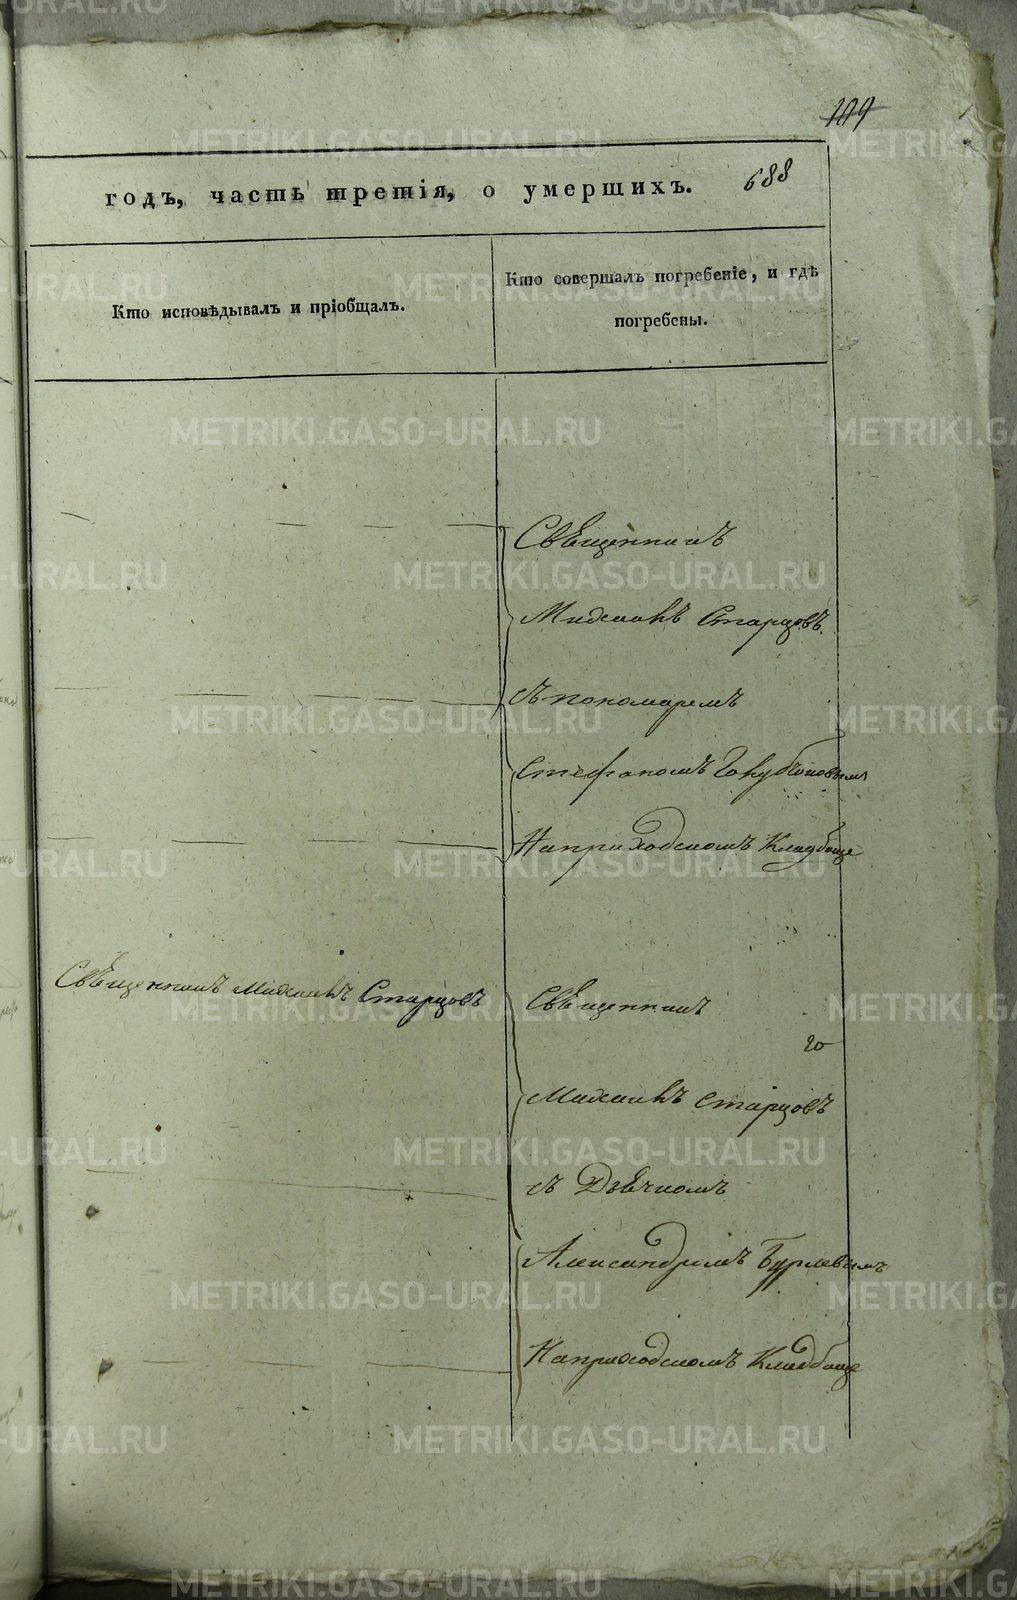 109
годъ, часть третія, о умершихъ. 688
Кто исповѣдывалъ и пріобщалъ.
Кто совершалъ погребеніе, и гдѣ
погребены.
Свѣщенникъ
Михаилъ Старцовъ
съ пономаремъ
Стефаномъ
На приходскомъ Кладбище
Свѣщенникъ Михаилъ Старцовъ
Свѣщенникъ
Михаилъ Старцовъ
съ Дьвчкомъ
Александромъ
На приходскомъ Кладбище
METRIKI.GASO-URAL.RU